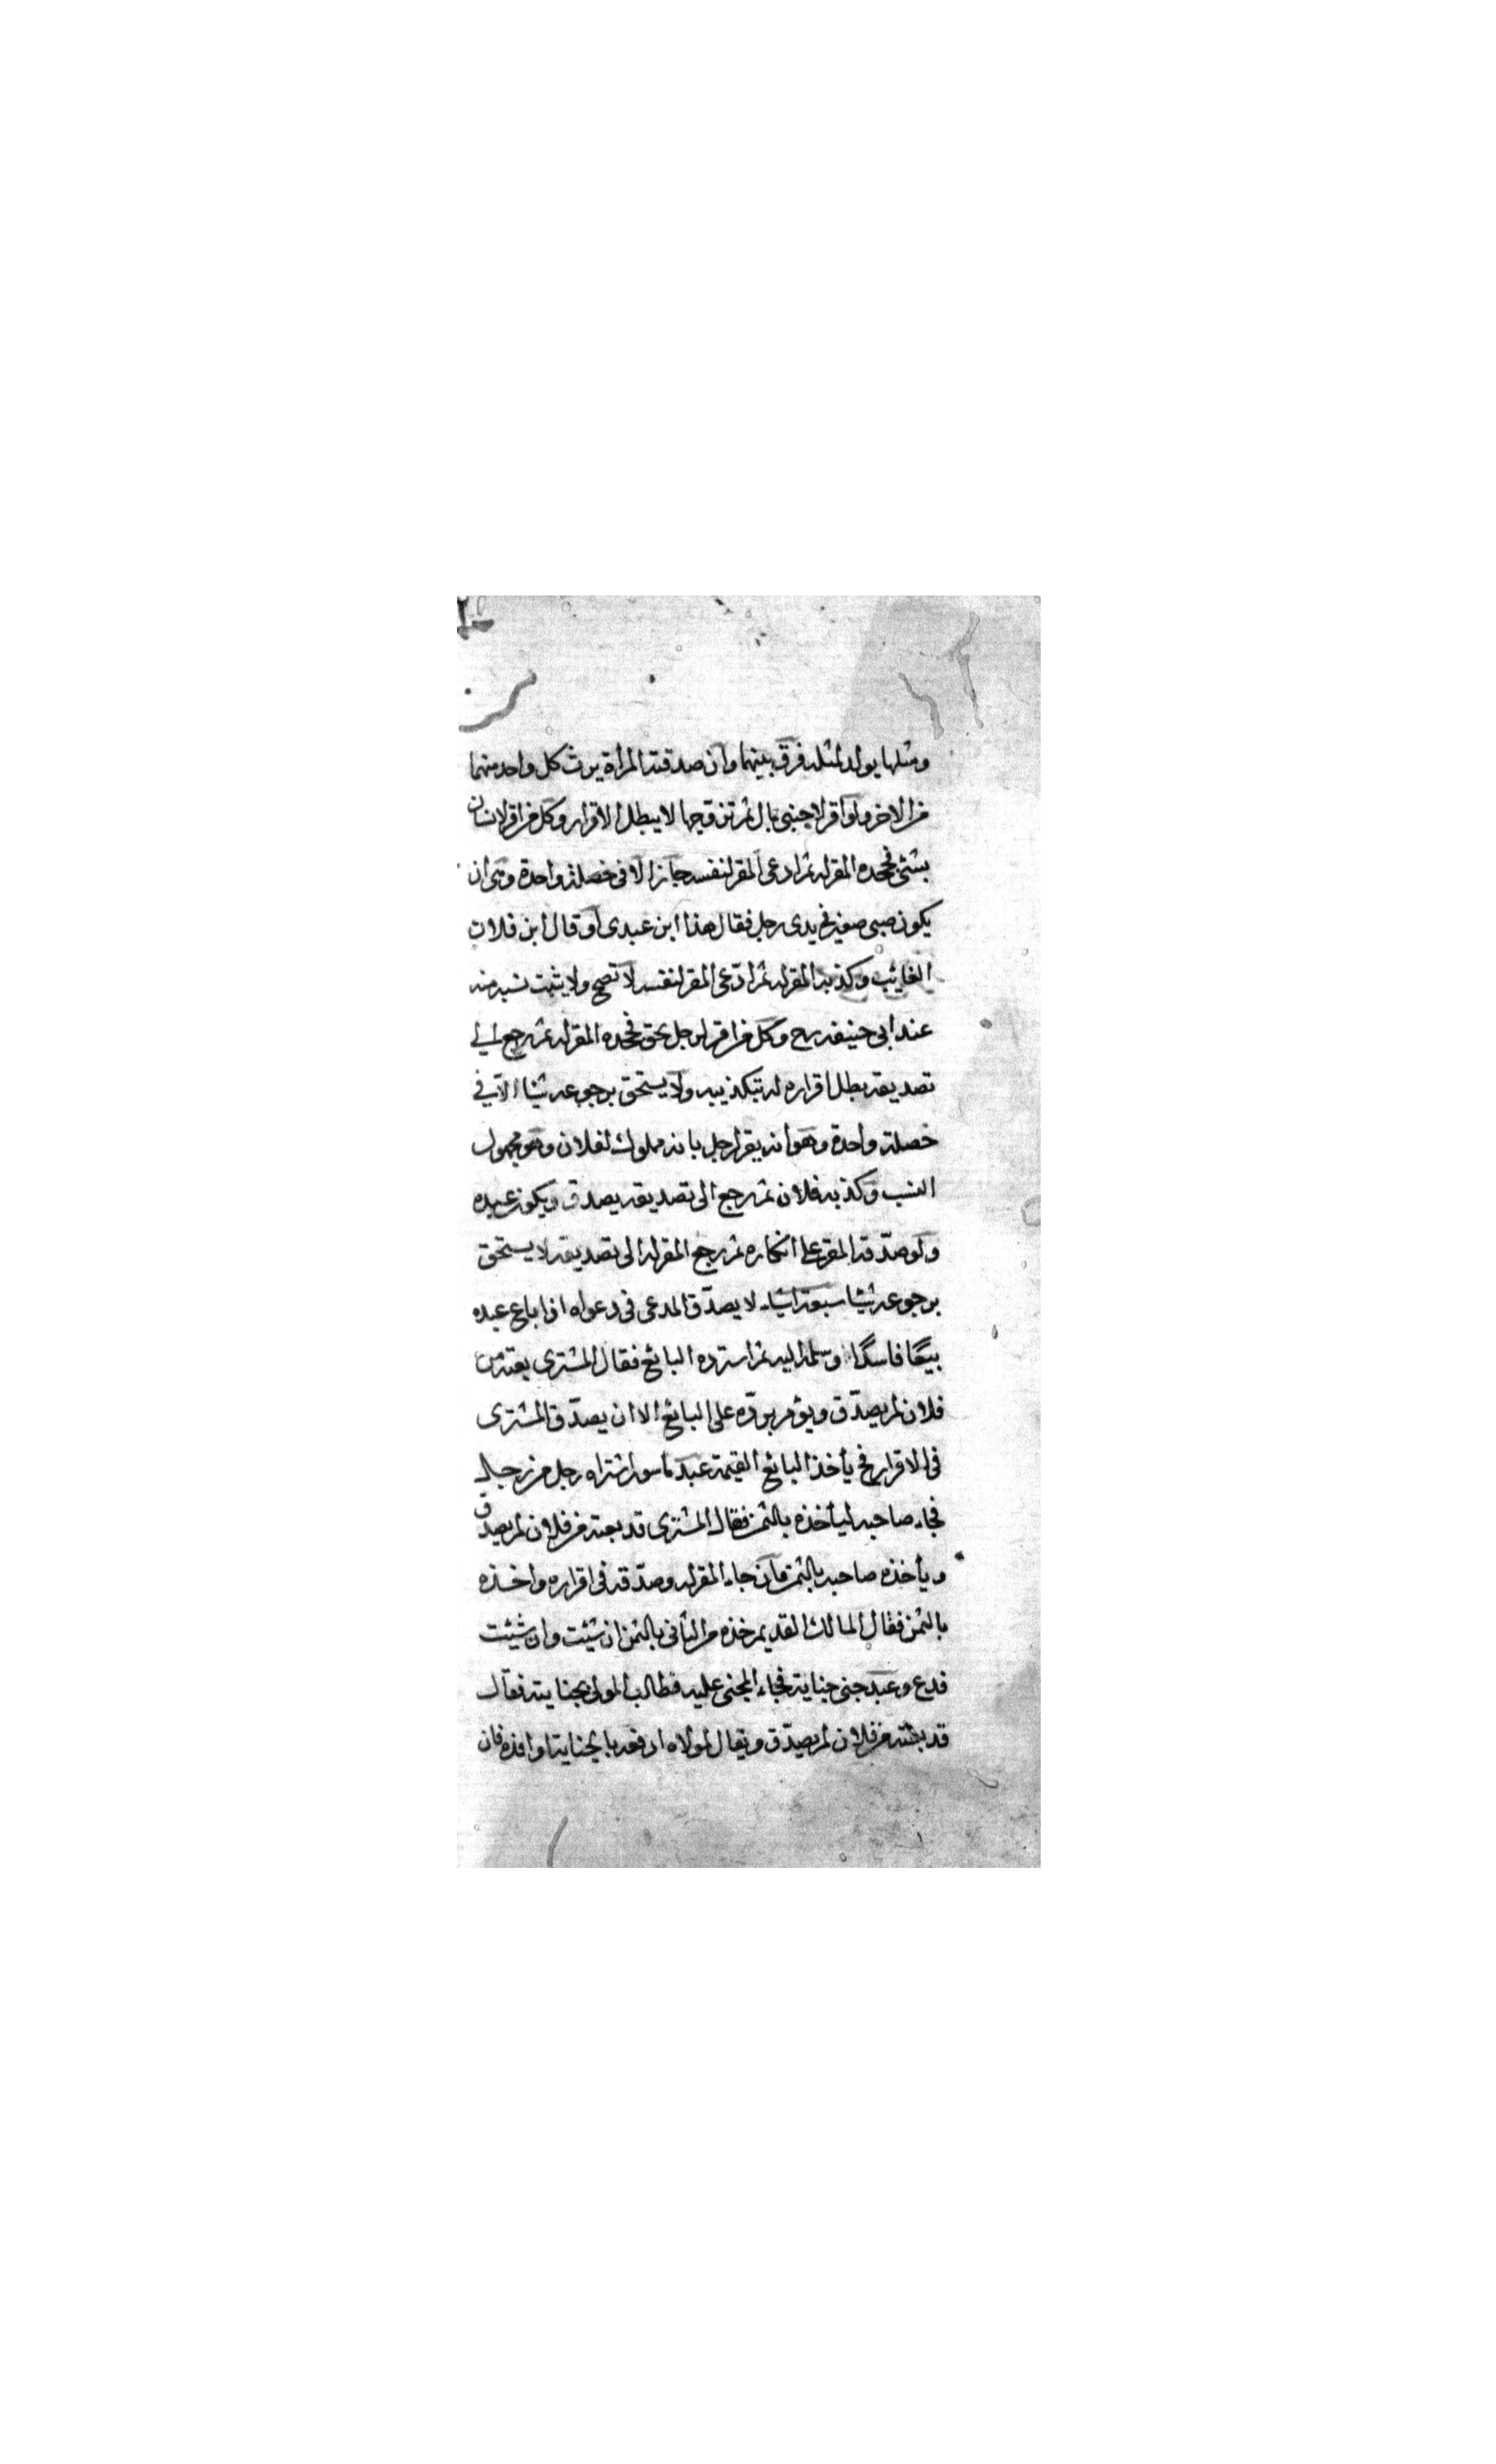 ومثلها يولد لمثله فرق بينهما وان صدقته المرأة يرث كل واحد منهما
من الاخر ولو اقر لاجنبى بمال ثم تزوجها لا يبطل الاقرار وكل من اقر لانسان
بشئ فجحده المقر له ثم ادعى المقر لنفسه جاز الا فى خصلة واحدة وهى ان
يكون صبى صغير فى يدى رجل فقال هذا ابن عبدى او قال ابن فلان
الغايب وكذبه المقر له ثم ادّعى المقر لنفسه لا تصح ولا يثبت نسبه منه
عند ابى حنيفه رح وكل من اقر لرجل بحق فجحده المقر له ثم رجع الى
تصديقه بطل اقراره له بتكذيبه ولا يستحق برجوعه شيئا الا فى
خصلة واحدة وهو انه يقر الرجل بانه مملوك لفلان وهو مجهول
النسب وكذبه فلان ثم رجع الى تصديقه يصدق ويكون عبده
ولو صدّقه المقر على انكاره ثم رجع المقر له الى تصديقه لا يستحق
برجوعه شيئا سبعة اشياء لا يصدّق المدعى فى دعواه اذا باع عبده
بيعًا فاسدًا وسلمه اليه ثم استرده البائع فقال المشترى بعته من
فلان لم يصدّق ويؤمر بردّه على البائع الا ان يصدّق المشترى
فى الاقرار فح يأخذ البائع القيمة عبد مأسور اشتراه رجل من رجال
فجاء صاحبه ليأخذه بالثمن فقال المشترى قد بعته من فلان لم يصدق
ويأخذه صاحبه بالثمن فان جاء المقر له وصدّقه فى اقراره واخذه
بالثمن فقال المالك القديم خذه من الثانى بالثمن ان شئت وان شئت
فدع وعبد جنى جناية فجاء المجنى عليه فطالب المولى بجنايته فقال
قد بعته من فلان لم يصدّق ويقال لمولاه ادفعه بالجناية او افده فان